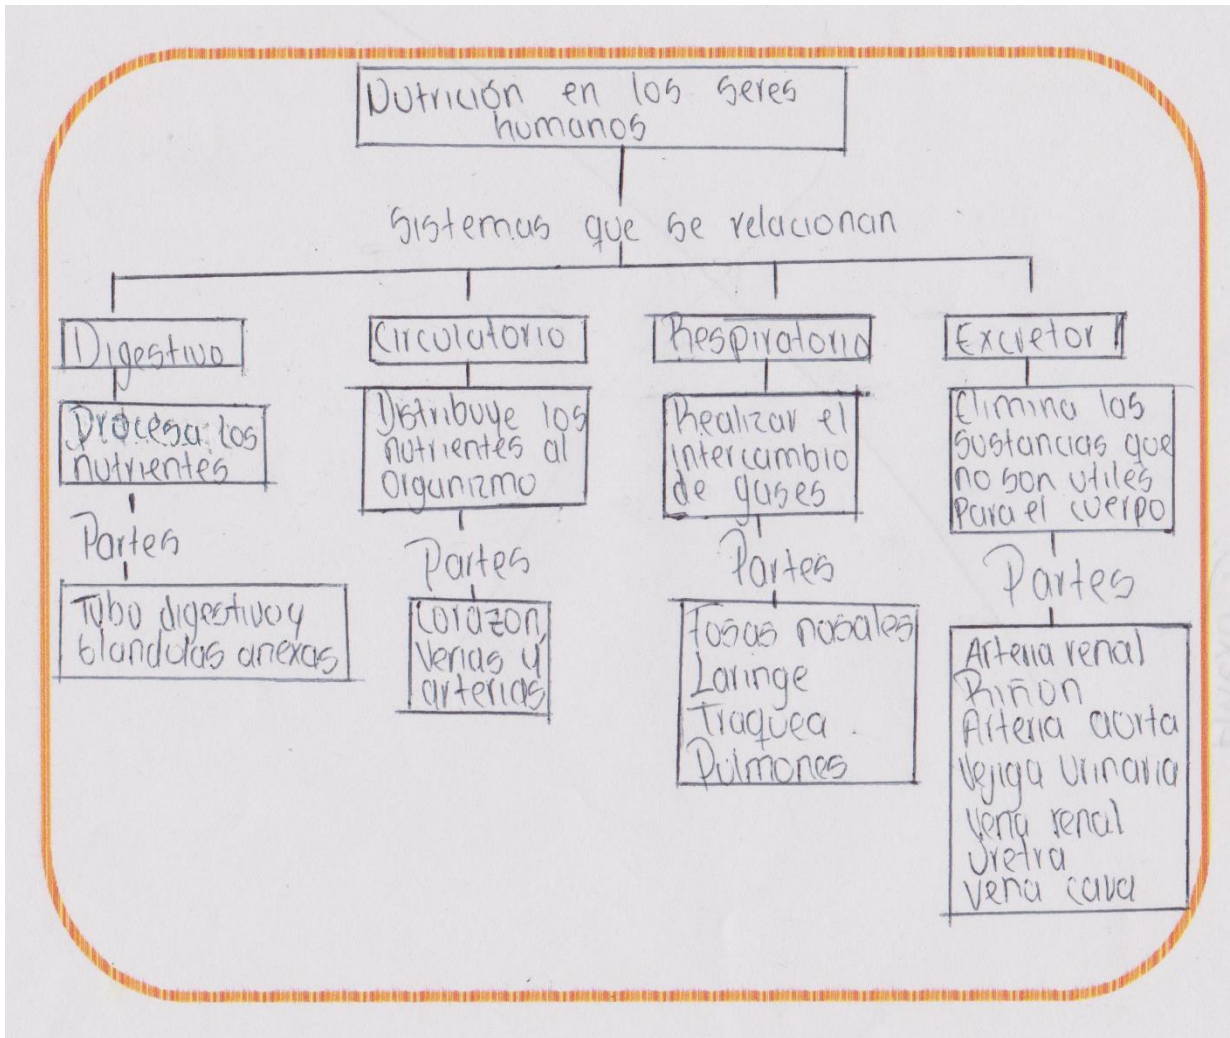 Nutrición en los seres
humanos
Sistemas que se relacionan
Digestivo
Procesa los
nutrientes
Partes
Tubo digestivo y
Glandulas anexas
Circulatorio
Distribuye los
nutrientes al
organizmo
Partes
Corazon,
venas y
arterias
Respiratorio
Realizar el
intercambio
de gases
Partes
Fosas nasales
Laringe
Traquea
Pulmones
Excretor
Elimina las
sustancias que
no son utiles
Para el cuerpo
Partes
Arteria renal
Riñon
Arteria aorta
Vejiga urinaria
Vena renal
Uretra
Vena cava